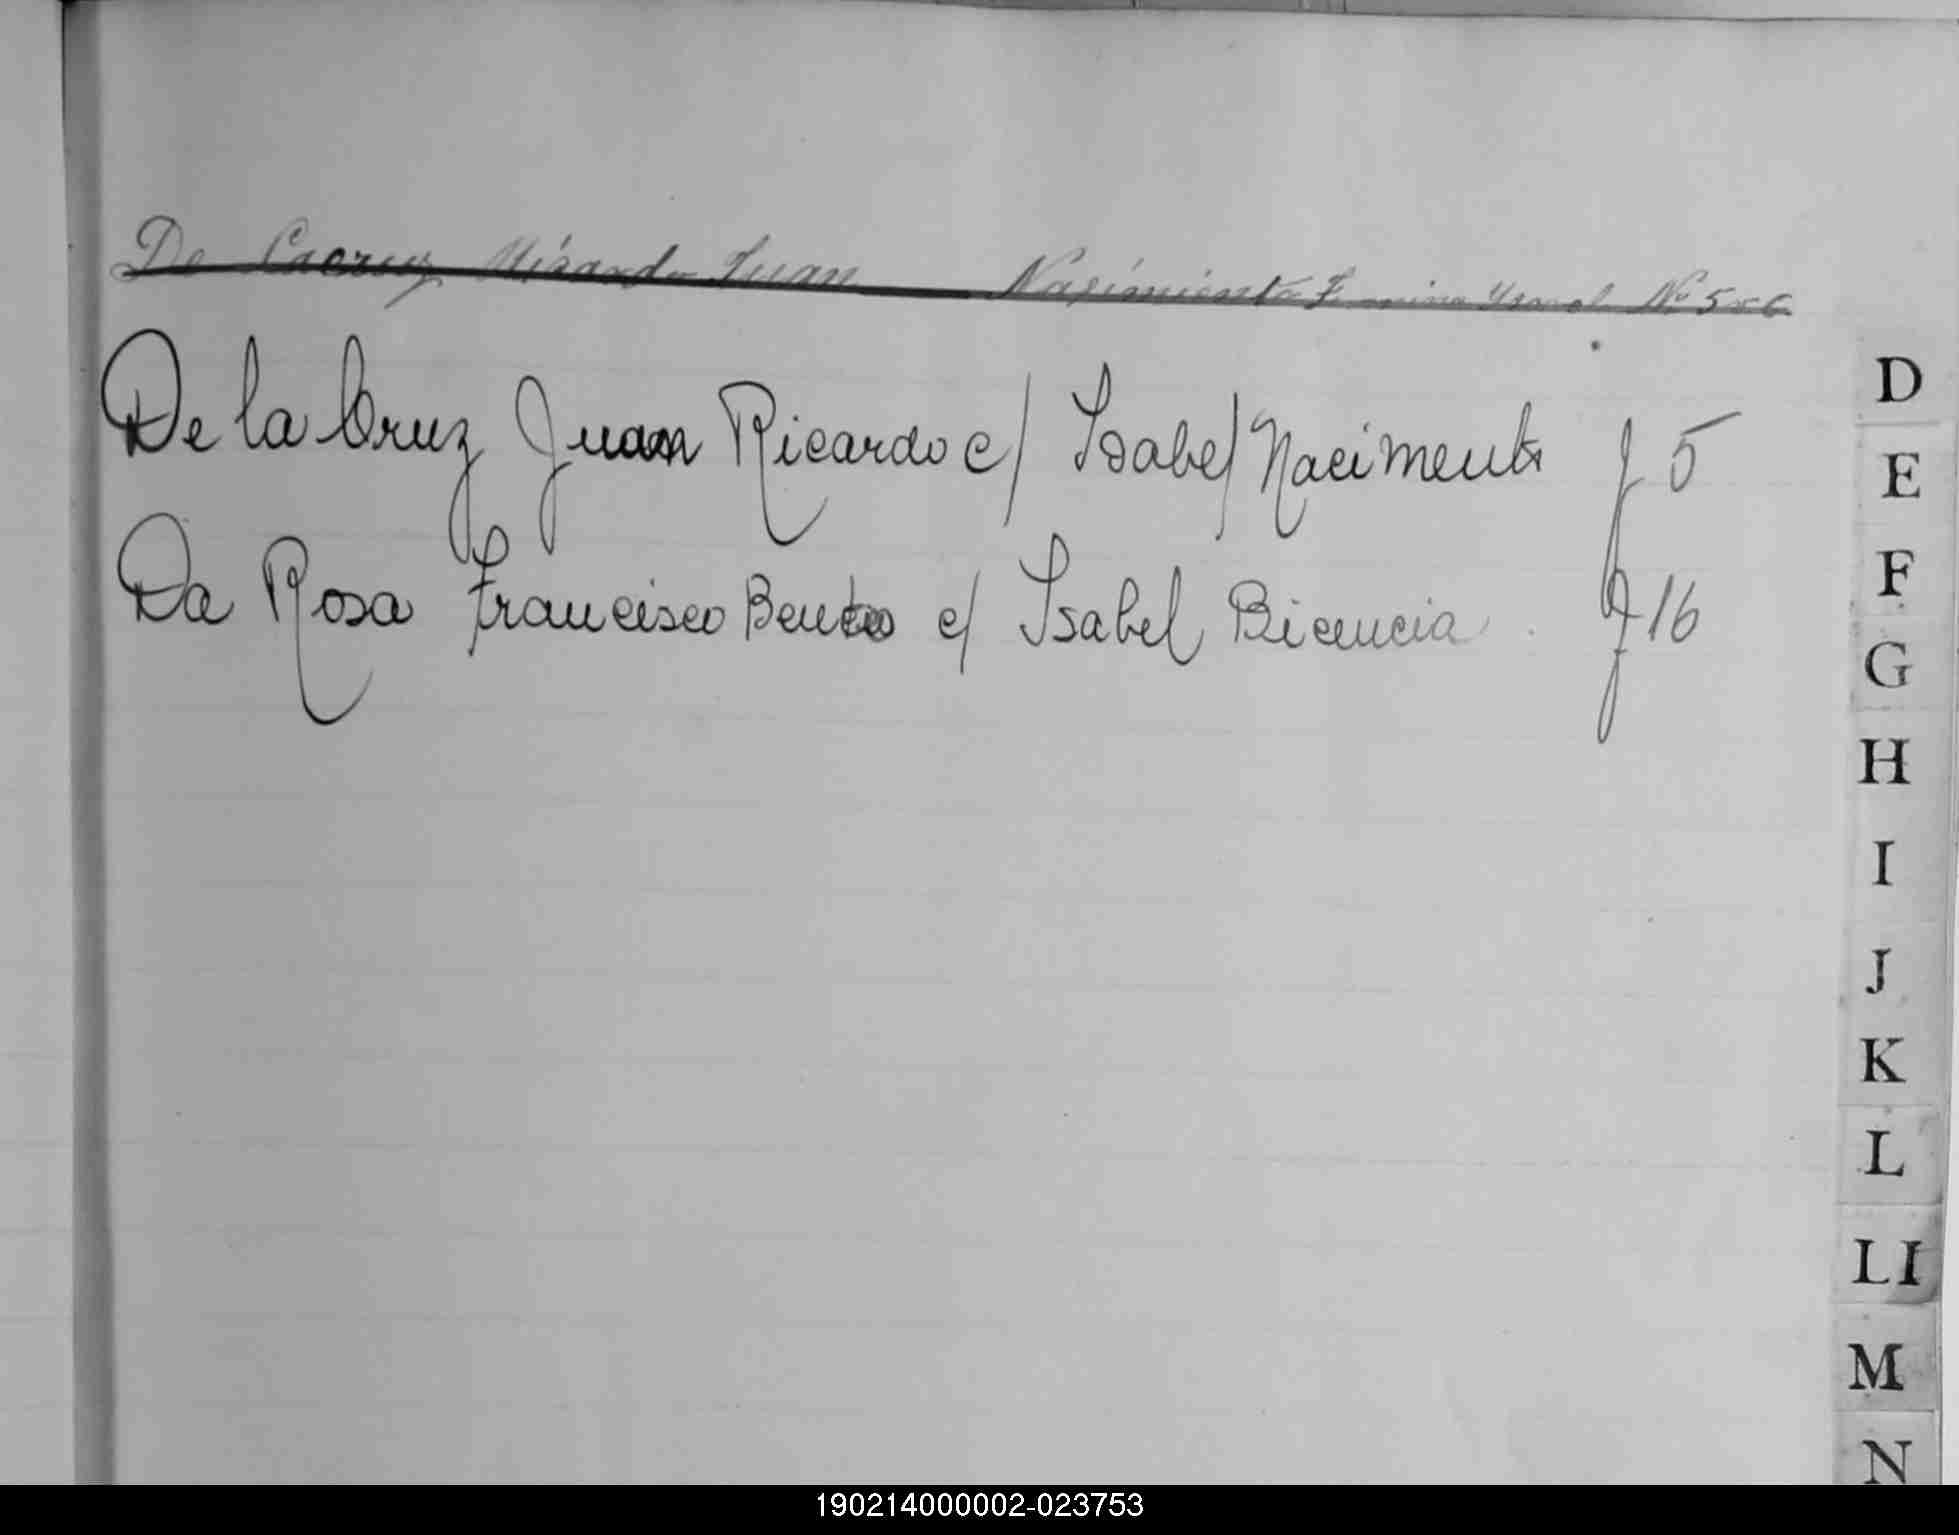 De Lacruz Mirando Juan Nasimiento No 5
De la Cruz Juan Ricardo c/ Isabel Nacimento f 5
Da Rosa Francisco Bento c/ Isabel Bicencia f 16
D
E
F
G
H
I
J
K
L
LI
M
N
190214000002-023753